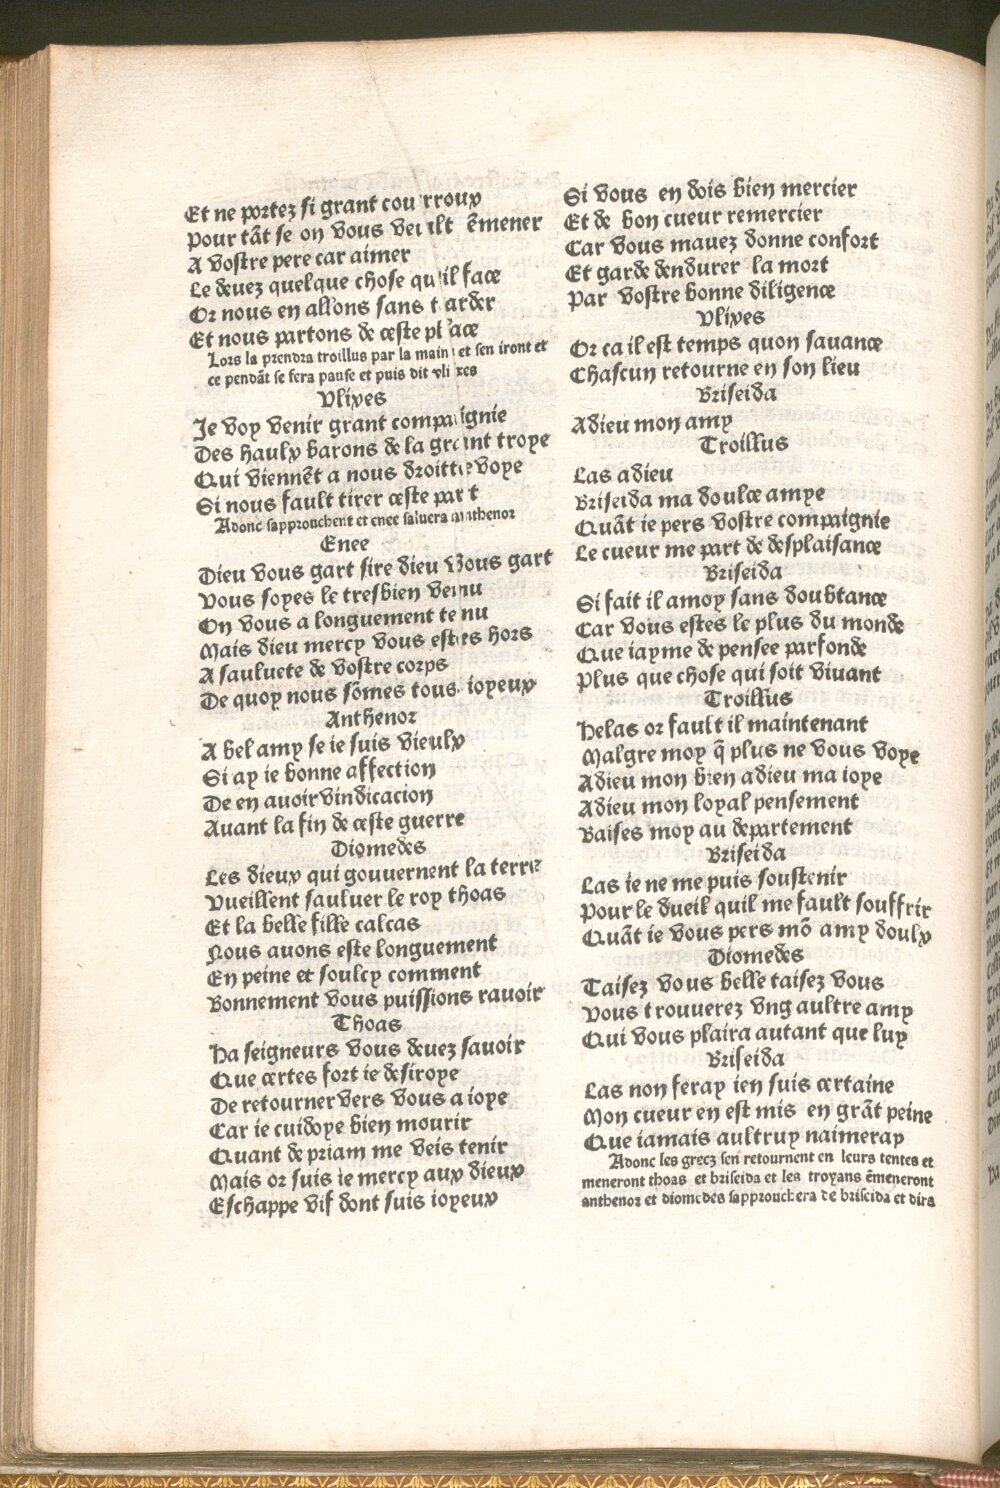 Et ne portez si grant courroux
Pour tãt se on vous veuilt ẽmener
A vostre pere car aimer
Le devez quelque chose qu'il face
Or nous en allons sans tarder
Et nous partons de ceste place
Lors la prendra troillus par la main et sen iront et
ce pendãt se fera pause et puis dit vlixes
Vlixes
Je voy venir grant compaignie
Des haulx barons de la grant troye
Qui viennẽt a nous droitte voye
Si nous fault tirer ceste part
Adonc sapprouchent et enee saluera anthenor
Enee
Dieu vous gart sire dieu vous gart
Vous soyes le tresbien venu
On vous a longuement tenu
Mais dieu mercy vous estes hors
A sauluete de vostre corps
De quoy nous sõmes tous ioyeux
Anthenor
A bel amy se ie suis vieulx
Si ay ie bonne affection
De en auoir vindicacion
Auant la fin de ceste guerre
Diomedes
Les dieux qui gouuernent la terre
Vueillent sauluer le roy thoas
Et la belle fille calcas
Nous auons este longuement
En peine et soulcy comment
Bonnement vous puissions rauoir
Thoas
Ha seigneurs vous deuez sauoir
Que certes fort ie desiroye
De retourner vers vous a ioye
Car ie cuidoye bien mourir
Quant de priam me veis tenir
Mais or suis ie mercy aux dieux
Eschappe vif dont suis ioyeux
Si vous en dois bien mercier
Et de bon cueur remercier
Car vous mauez donne confort
Et garde dendurer la mort
Par vostre bonne diligence
Vlixes
Or ca il est temps quon sauance
Chascun retourne en son lieu
Briseida
Adieu mon amy
Troillus
Las adieu
Briseida ma doulce amye
Quãt ie pers vostre compaignie
Le cueur me part de desplaisance
Briseida
Si fait il amoy sans doubtance
Car vous estes le plus du monde
Que iayme de pensee parfonde
Plus que chose qui soit viuant
Troillus
Helas or fault il maintenant
Malgre moy q̃ plus ne vous voye
Adieu mon bien adieu ma ioye
Adieu mon loyal pensement
Baises moy au departement
Briseida
Las ie ne me puis soustenir
Pour le dueil quil me fault souffrir
Quãt ie vous pers mõ amy doulx
Diomedes
Taisez vous belle taisez vous
Vous trouuerez vng aultre amy
Qui vous plaira autant que luy
Briseida
Las non feray ien suis certaine
Mon cueur en est mis en grãt peine
Que iamais aultruy naimeray
Adonc les grecz sen retournent en leurs tentes et
meneront thoas et briseida et les troyans ẽmeneront
anthenor et diomedes sapprouchera de briseida et dira